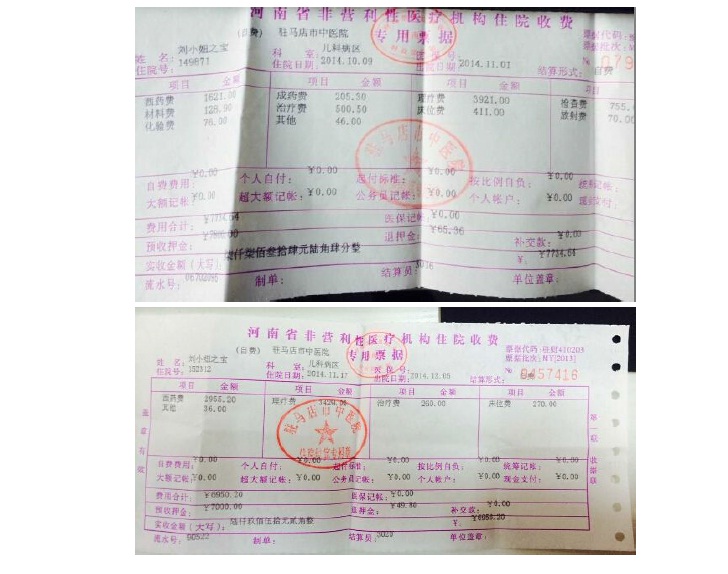 河南省非营利性医疗机构住院收费
(自费) 驻马店市中医院 专用票据
姓 名: 刘小妞之宝 科 室: 儿科病区
住院号: 149871 住院日期: 2014.10.09 出院日期: 2014.11.01 结算形式: 自费
项目 金额 项目 金额 项目 金额 项目
西药费 1621.00 成药费 205.50 理疗费 3921.00 检查费 755.
材料费 126.90 治疗费 500.50 床位费 411.00 放射费 70.00
化验费 78.00 其他 46.00
自费费用: ¥0.00 个人自付: ¥0.00 起付标准: ¥0.00 按比例自负: ¥0.00 统筹记帐:
大额记帐: ¥0.00 超大额记帐: ¥0.00 公务员记帐: ¥0.00 个人帐户: ¥0.00
费用合计: ¥7734.64 医保记帐: ¥0.00
预收押金: ¥7800.00 退押金: ¥65.36 补交款: ¥0.00
实收金额(大写): 柒仟柒佰叁拾肆元陆角肆分整 ¥: ¥7734.64
流水号: 制单: 结算员: 单位盖章:
驻马店市中医院
河南省非营利性医疗机构住院收费
(自费) 驻马店市中医院 专用票据 票据代码:
票据批次: NY[2013]
姓 名: 刘小妞之宝 科 室: 儿科病区 № 0457416
住院号: 152312 住院日期: 2014.11.17 出院日期: 2014.12.05 结算形式:
项目 金额 项目 金额 项目 金额 项目 金额
西药费 2955.20 理疗费 3429.00 治疗费 260.00 床位费 270.00
其他 36.00
驻马店市中医院
自费费用: ¥0.00 个人自付: ¥0.00 起付标准: ¥0.00 按比例自负: ¥0.00 统筹记帐: ¥0.00
大额记帐: ¥0.00 超大额记帐: ¥0.00 公务员记帐: ¥0.00 个人帐户: ¥0.00 现金支付: ¥0.00
费用合计: ¥6950.20 医保记帐: ¥0.00
预收押金: ¥7000.00 退押金: ¥49.80 补交款: ¥0.00
实收金额(大写): 陆仟玖佰伍拾元贰角整 ¥: ¥6950.20
流水号: 90522 制单: 结算员: 单位盖章: